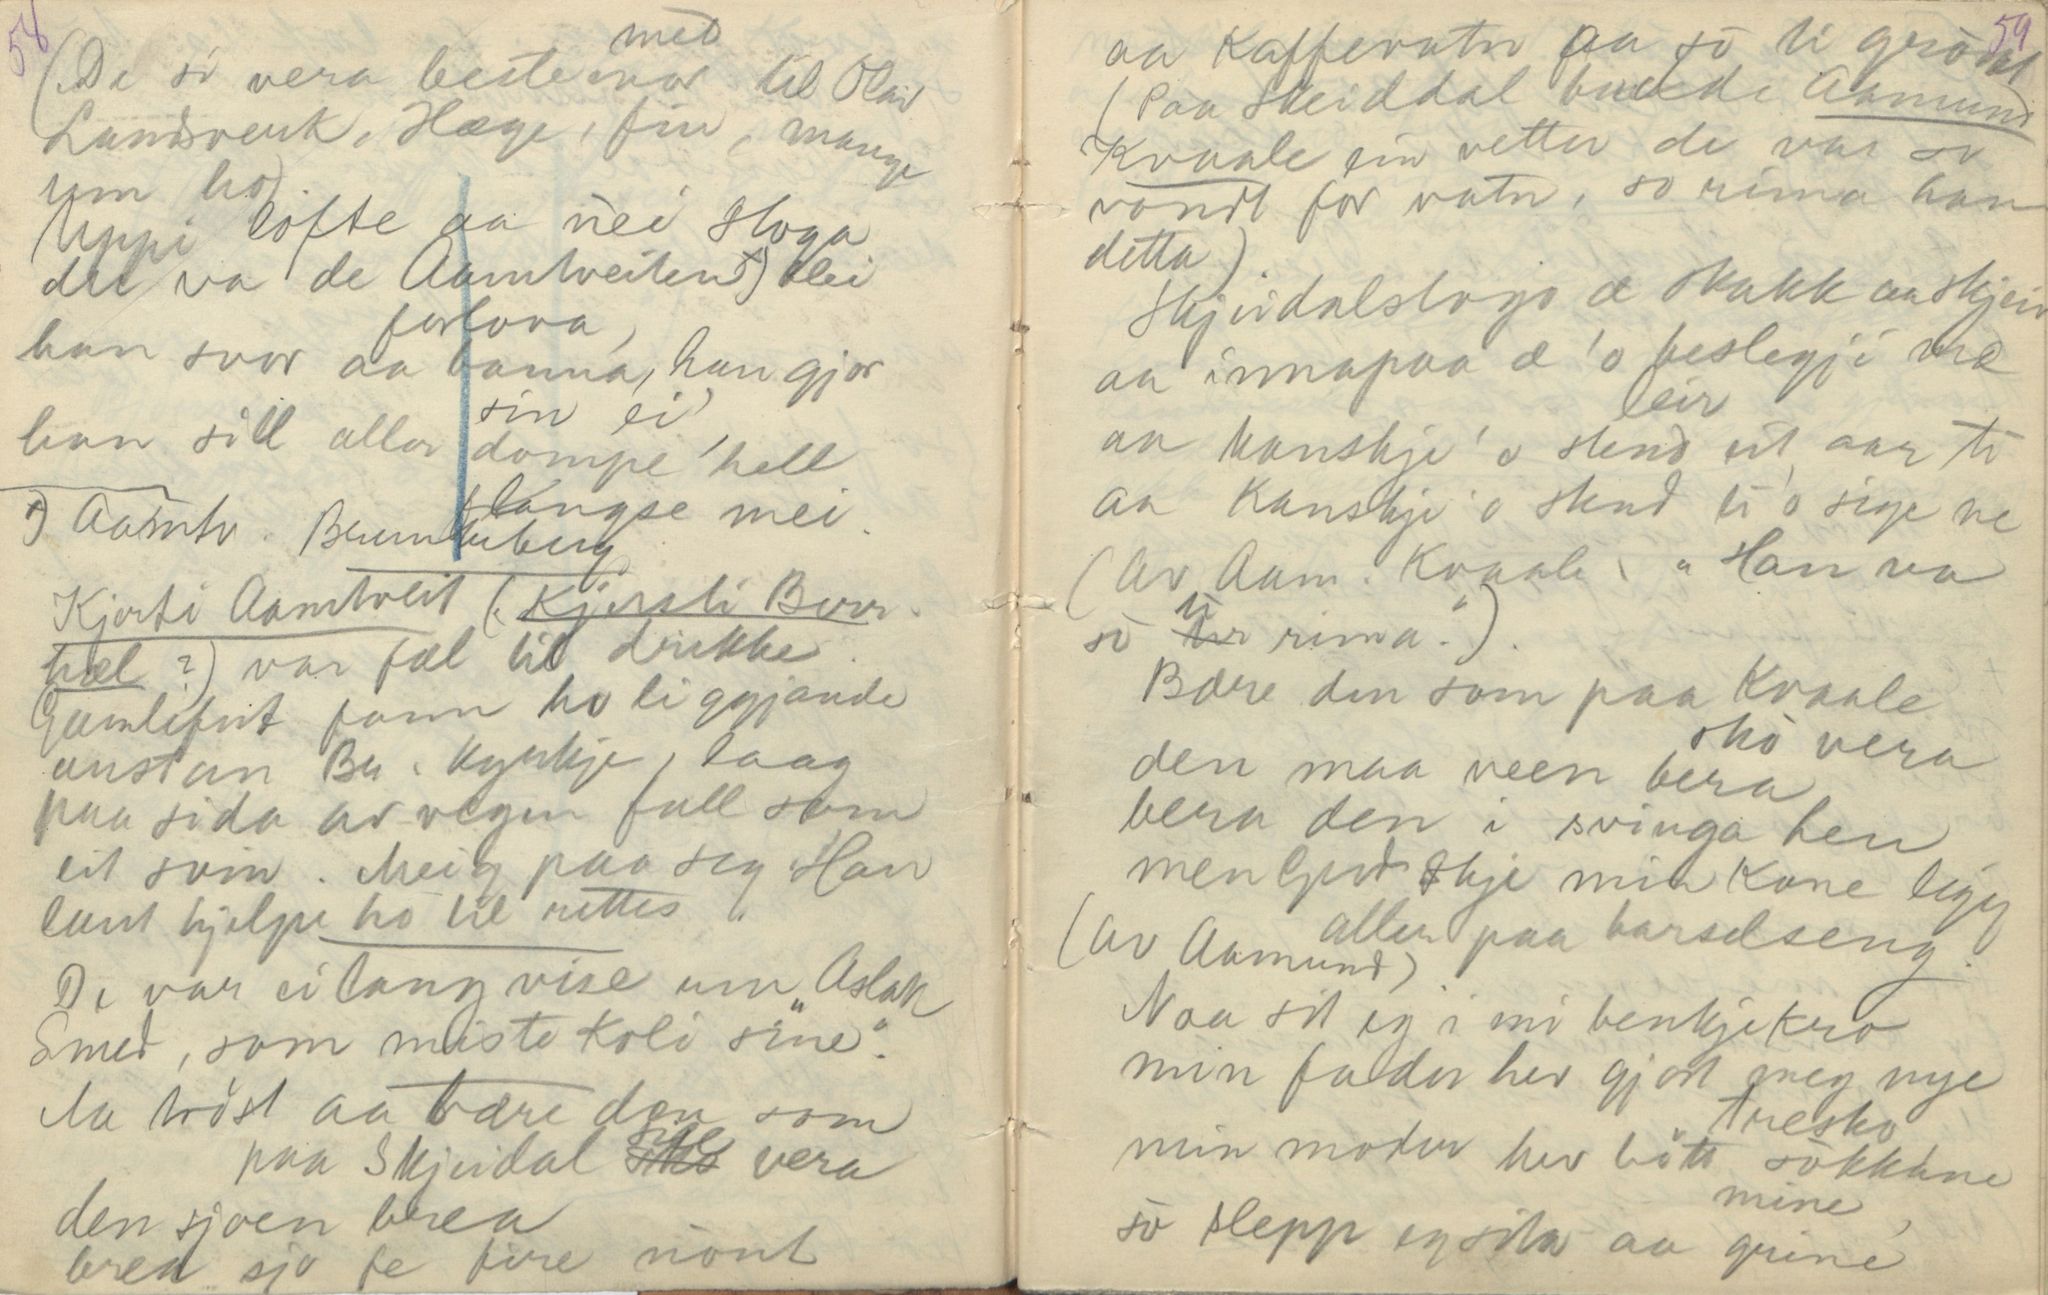 58
(De si vera bestemor
med
til Olav
Landsverk, Hæge, fin, mange
um ho).
Uppi löfte aa nei stoga
der va de Aamtveiten *) blei
forlova,
han svor aa banna, han gjor
sin ei,
han sill aller dompe hell
slangse mei.
*) Aamtv. Brunkeberg
Kjersti Aamtveit (Kjersti Burr-
hæl?) var fæl til drikke.
Gamlefut fann ho liggjande
austan Br. kyrkje, laag
paa sida av vegen full som
eit svin. Meig paa seg. Han
laut hjelpe ho til rettes.
De var ei lang vise um "Aslak
Smed, som miste Koli sine".
Aa tröst aa bære den som
paa Skjeidal skö vera
den sjoen brea
brea sjo fe fire nönt
59
aa Kaffevatn aa sö ti grödat
(Paa Skeiddal budde Aamund
Kvaale ein vetter de var so
vondt for vatn, so rima han
detta)
Skjeidalstogo æ skakk aa skjeiv
aa innapaa æ 'o beslegji mæ
leir
aa kanskje 'o stend eit aar ti
aa kanskje 'o stend ti 'o sige ne
(Av Aam. Kvaale. "Han va
sö ti rima.").
Bære den som paa Kvaale
skö vera
den maa veen bera
bera den i svinga hen
men Gud skje min Kone ligg
aller paa barselseng.
(Av Aamund)
Naa sit eg i mi benkjekro
min fader hev gjort meg nye
tresko
min moder hev bött sökkane
mine,
sö slepp eg sita aa grine